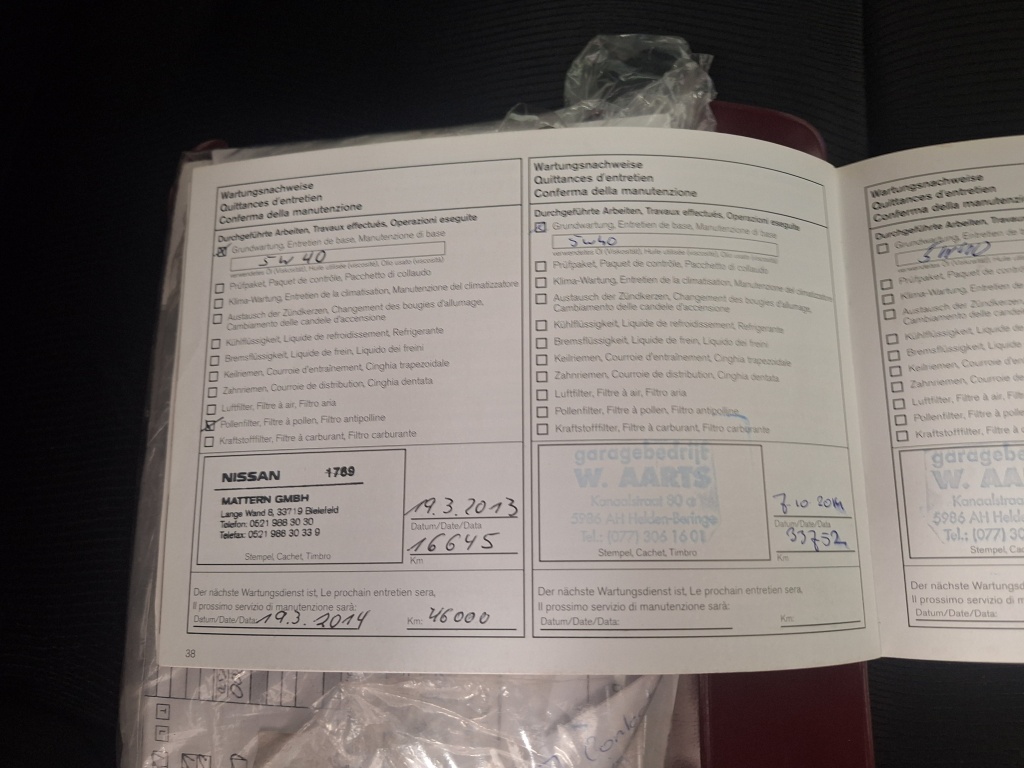 Wartungsnachweise
Quittances d'entretien
Conferma della manutenzione
Durchgeführte Arbeiten, Travaux effectués, Operazioni eseguite
Grundwartung, Entretien de base, Manutenzione di base
5W40
verwendetes Öl (Viskosität), Huile utilisée (viscosité), Olio usato (viscosità)
Prüfpaket, Paquet de contrôle, Pacchetto di collaudo
Klima-Wartung, Entretien de la climatisation, Manutenzione del climatizzatore
Austausch der Zündkerzen, Changement des bougies d'allumage,
Cambiamento delle candele d'accensione
Kühlflüssigkeit, Liquide de refroidissement, Refrigerante
Bremsflüssigkeit, Liquide de frein, Liquido dei freini
Keilriemen, Courroie d'entraînement, Cinghia trapezoidale
Zahnriemen, Courroie de distribution, Cinghia dentata
Luftfilter, Filtre à air, Filtro aria
Pollenfilter, Filtre à pollen, Filtro antipolline
Kraftstofffilter, Filtre à carburant, Filtro carburante
NISSAN 1769
MATTERN GMBH
Lange Wand 8, 33719 Bielefeld
Telefon: 0521 988 30 30
Telefax: 0521 988 30 33 9
Stempel, Cachet, Timbro
19.3.2013
Datum/Date/Data
16645
Km
Der nächste Wartungsdienst ist, Le prochain entretien sera,
Il prossimo servizio di manutenzione sarà:
Datum/Date/Data: 19.3.2014 Km: 46000
38
Wartungsnachweise
Quittances d'entretien
Conferma della manutenzione
Durchgeführte Arbeiten, Travaux effectués, Operazioni eseguite
Grundwartung, Entretien de base, Manutenzione di base
5W40
verwendetes Öl (Viskosität), Huile utilisée (viscosité), Olio usato (viscosità)
Prüfpaket, Paquet de contrôle, Pacchetto di collaudo
Klima-Wartung, Entretien de la climatisation, Manutenzione del climatizzatore
Austausch der Zündkerzen, Changement des bougies d'allumage,
Cambiamento delle candele d'accensione
Kühlflüssigkeit, Liquide de refroidissement, Refrigerante
Bremsflüssigkeit, Liquide de frein, Liquido dei freini
Keilriemen, Courroie d'entraînement, Cinghia trapezoidale
Zahnriemen, Courroie de distribution, Cinghia dentata
Luftfilter, Filtre à air, Filtro aria
Pollenfilter, Filtre à pollen, Filtro antipolline
Kraftstofffilter, Filtre à carburant, Filtro carburante
garagebedrijf
W. AARTS
Kanaalstraat 80
5986 AH Helden-Beringe
Tel.: (077) 306 16 01
Stempel, Cachet, Timbro
7.10 2014
Datum/Date/Data
33752
Km
Der nächste Wartungsdienst ist, Le prochain entretien sera,
Il prossimo servizio di manutenzione sarà:
Datum/Date/Data: Km:
Wartungsnachweise
Quittances d'entretien
Conferma della manutenzione
Durchgeführte Arbeiten, Travaux
Grundwartung, Entretien de
5W40
Prüfpaket, Paquet de
Klima-Wartung, Entretien
Austausch der Zündkerzen,
Cambiamento delle
Kühlflüssigkeit, Liquide
Bremsflüssigkeit, Liquide
Keilriemen, Courroie d'e
Zahnriemen, Courroie de
Luftfilter, Filtre à air, F
Pollenfilter, Filtre à poll
Kraftstofffilter, Filtre à c
garagebe
W. AA
Kanaalst
5986 AH He
Tel.: (077) 30
Stempel, Cac
Der nächste Wartungsdi
Il prossimo servizio di m
Datum/Date/Data: